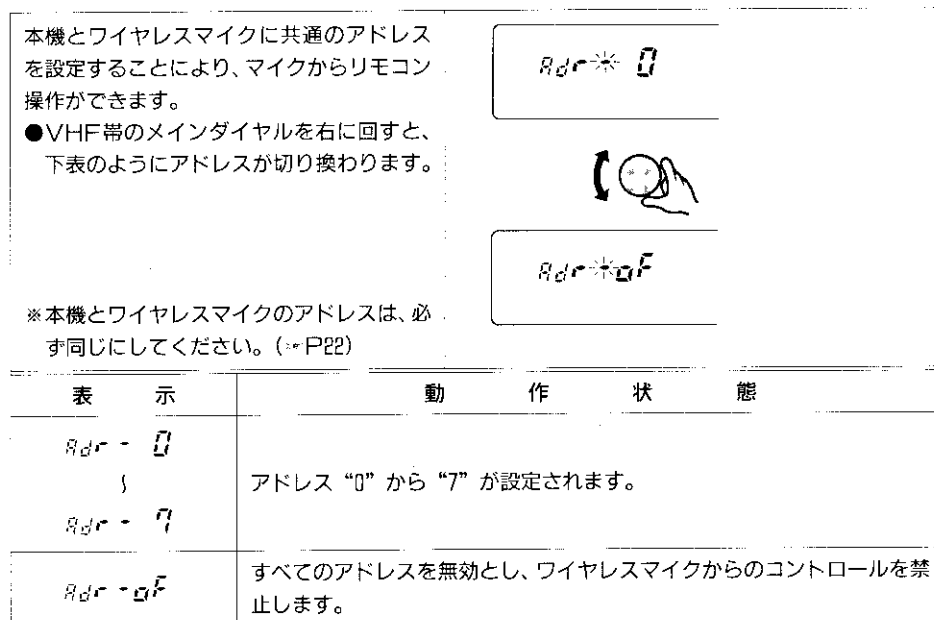 本機とワイヤレスマイクに共通のアドレス
を設定することにより、マイクからリモコン
操作ができます。
●VHF帯のメインダイヤルを右に回すと、
下表のようにアドレスが切り換わります。
※本機とワイヤレスマイクのアドレスは、必
ず同じにしてください。(☞P22)
Adr-0
Adr-oF
表示 動作状態
Adr-0
〜
Adr-7
アドレス“0”から“7”が設定されます。
Adr-oF
すべてのアドレスを無効とし、ワイヤレスマイクからのコントロールを禁
止します。